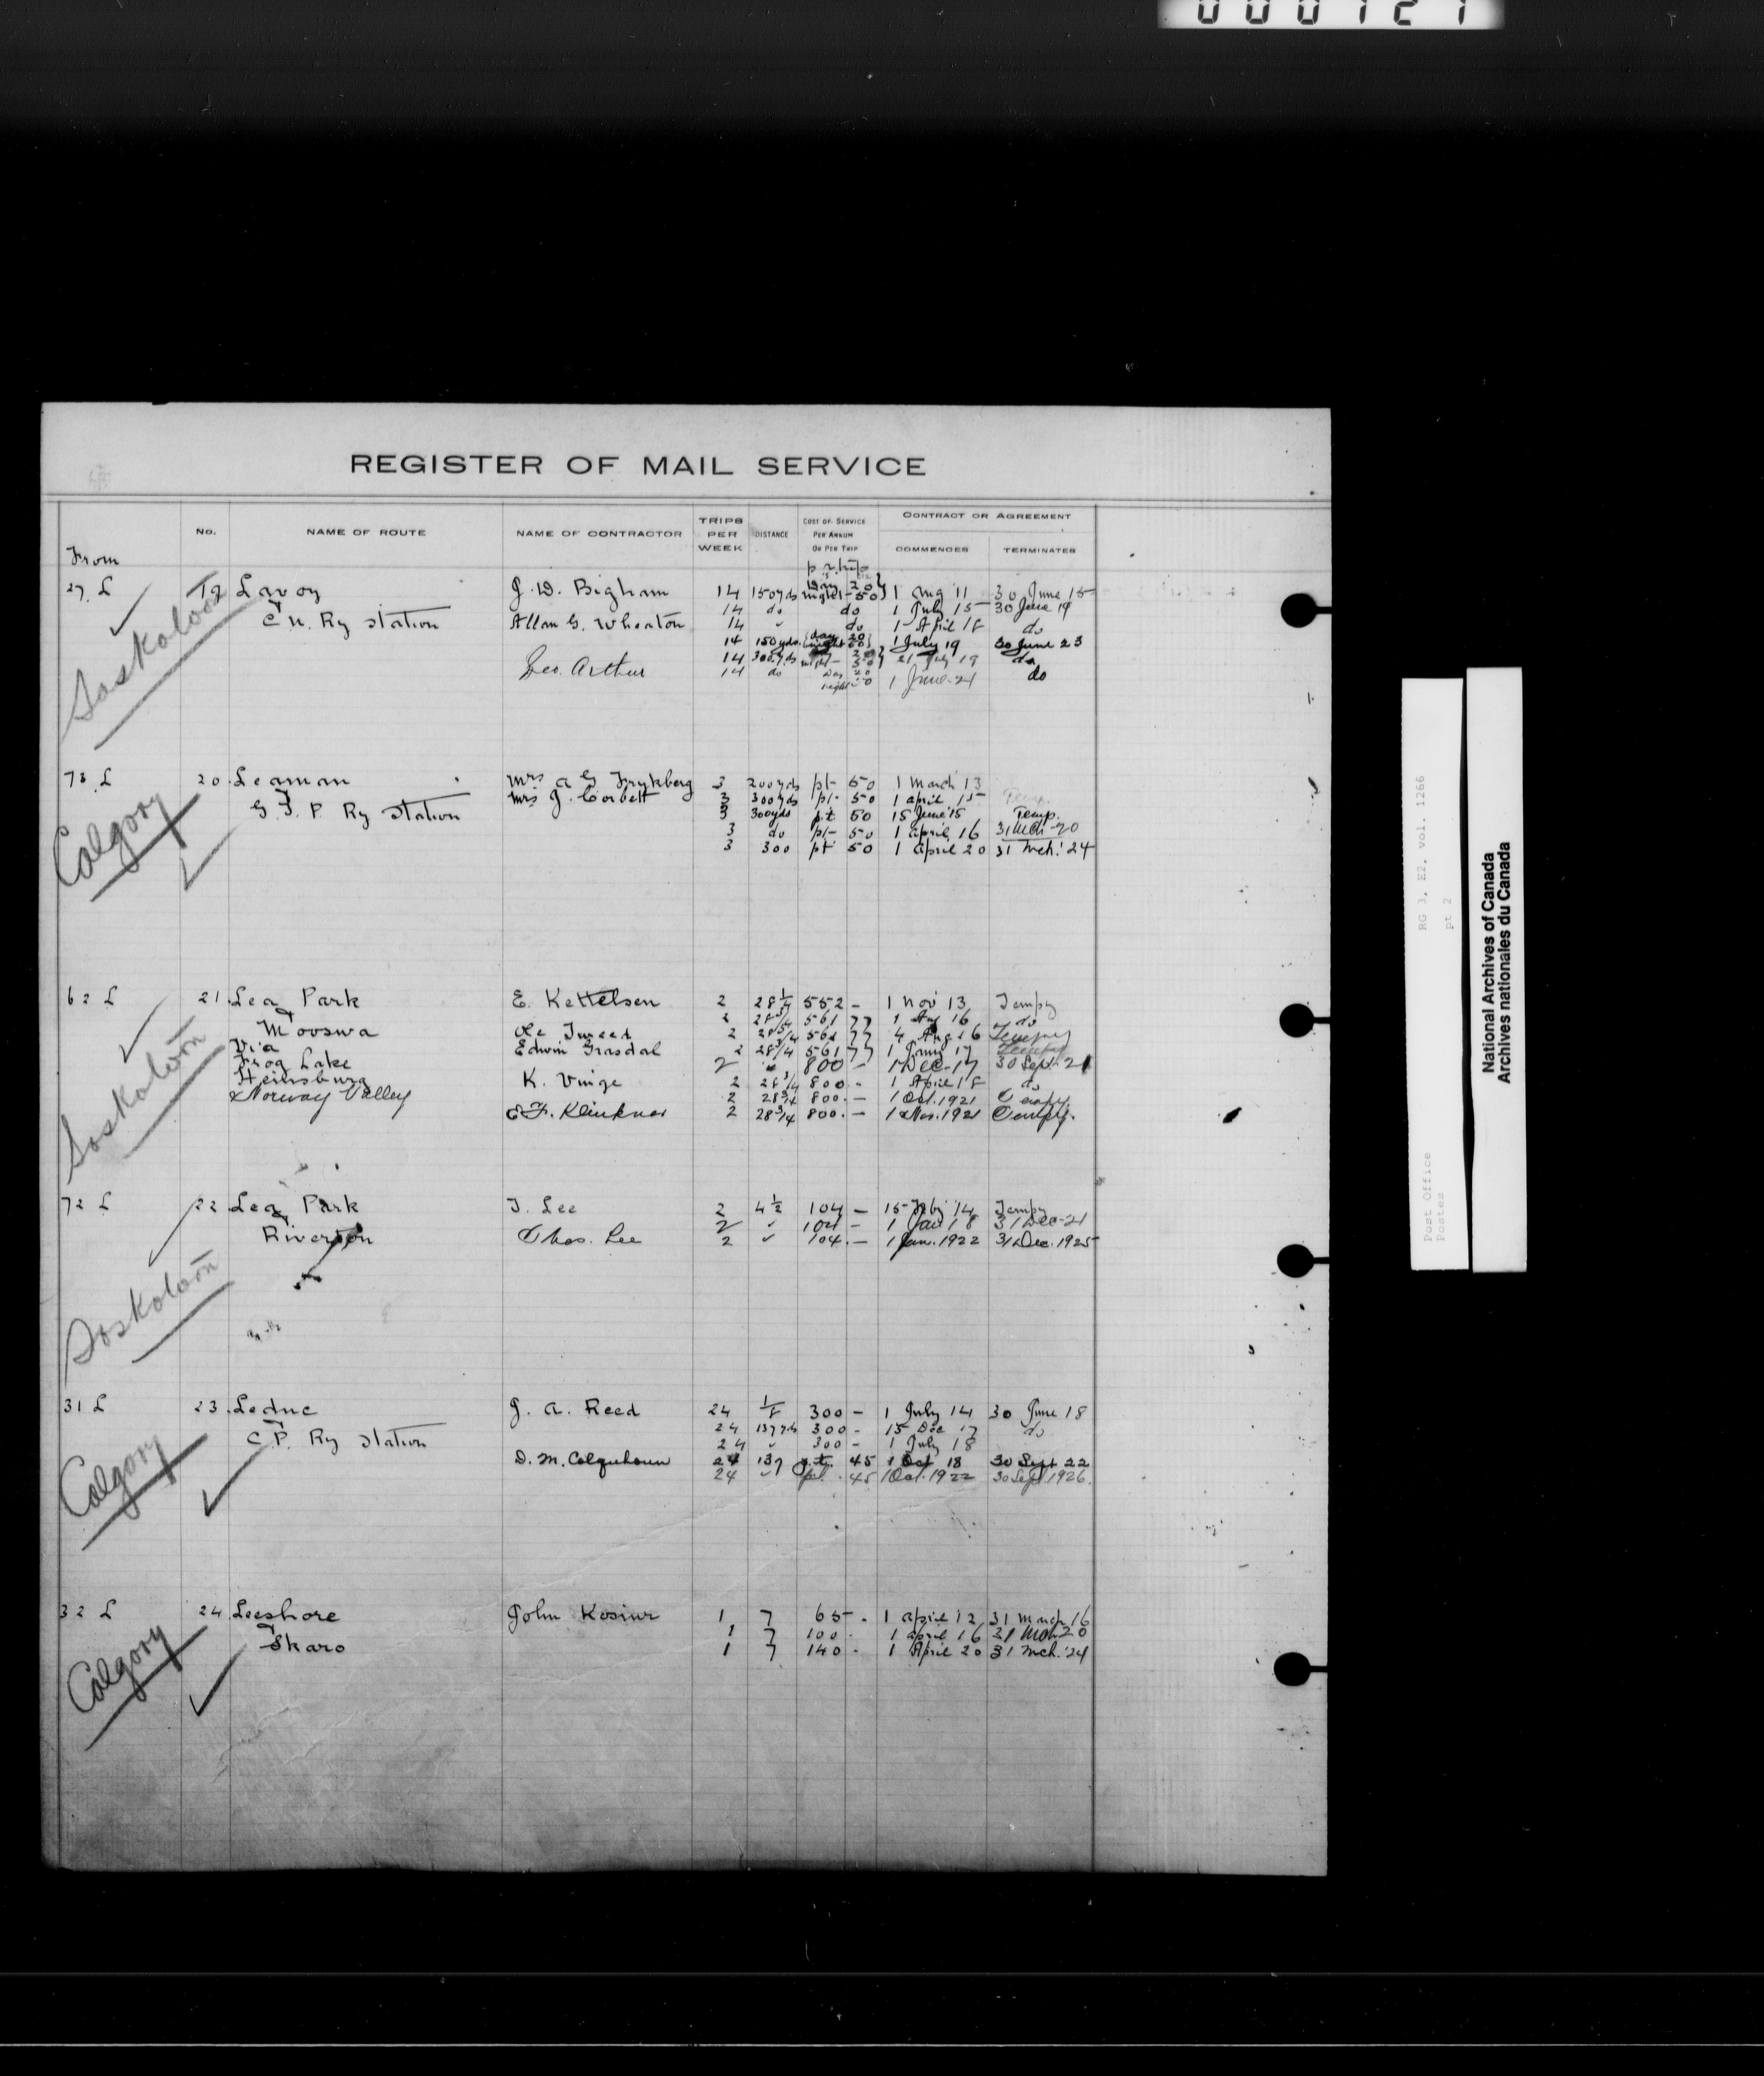 000121
REGISTER OF MAIL SERVICE
From No. NAME OF ROUTE NAME OF CONTRACTOR TRIPS PER WEEK DISTANCE COST OF SERVICE PER ANNUM OR PER TRIP CONTRACT OR AGREEMENT COMMENCES TERMINATES
p. trip
27 L 19 Lavoy J. D. Bigham 14 150 yds Day 20 night 50 1 Aug 11 30 June 15
& C N. Ry Station 14 do do 1 July 15 30 June 19
Allan G. Wheaton 14 " do 1 April 18 do
14 150 yds. day 20 night 50 1 July 19 30 June 23
14 300 yds night 50 21 July 19 do
Geo. Arthur 14 do Day 20 night 50 1 June 21 do
Saskatoon
73 L 20 Leaman Mrs A G Frykberg 3 200 yds pt 50 1 March 13
& G. T. P. Ry Station Mrs J. Corbett 3 300 yds pt 50 1 April 15 Temp.
3 300 yds p.t. 50 15 June '15 Temp.
3 do pt 50 1 April 16 31 Mch 20
3 300 pt 50 1 April 20 31 Mch. '24
Calgary
62 L 21 Lea Park E. Kettelsen 2 28 1/4 552 - 1 Nov 13 Tempy
& Mooswa 2 28 3/4 561 77 1 Aug 16 do
Via Ole Tweed 2 28 3/4 561 77 4 Aug 16 Tempy
Frog Lake Edwin Grasdal 2 28 3/4 561 77 1 Jany 17 Tempy
Heinsburg 2 " 800 - 1 Dec. 17 30 Sept. 21
& Norway Valley K. Vinge 2 28 3/4 800 - 1 April 18 do
2 28 3/4 800. - 1 Oct. 1921 Tempy.
E F. Klinkner 2 28 3/4 800. - 1 Nov. 1921 Tempy.
Saskatoon
72 L 22 Lea Park T. Lee 2 4 1/2 104 - 15 Feby '14 Tempy
& Riverton 2 " 104 - 1 Jan 18 31 Dec. 21
Thos. Lee 2 " 104. - 1 Jan. 1922 31 Dec. 1925
Saskatoon
31 L 23 Leduc J. A. Reed 24 1/8 300 - 1 July 14 30 June 18
& C. P. Ry Station 24 137 yds 300 - 15 Dec 17 do
24 " 300 - 1 July 18
D. M. Colquhoun 24 137 p.t. 45 1 Oct 18 30 Sept 22
24 " pt. 45 1 Oct. 1922 30 Sept. 1926.
Calgary
32 L 24 Leeshore John Kosiur 1 7 65 - 1 April 12 31 March 16
& Skaro 1 7 100 - 1 April 16 31 Mch 20
1 7 140 - 1 April 20 31 Mch. '24
Calgary
RG 3, E2, vol. 1266
pt 2
Post Office
Postes
National Archives of Canada
Archives nationales du Canada